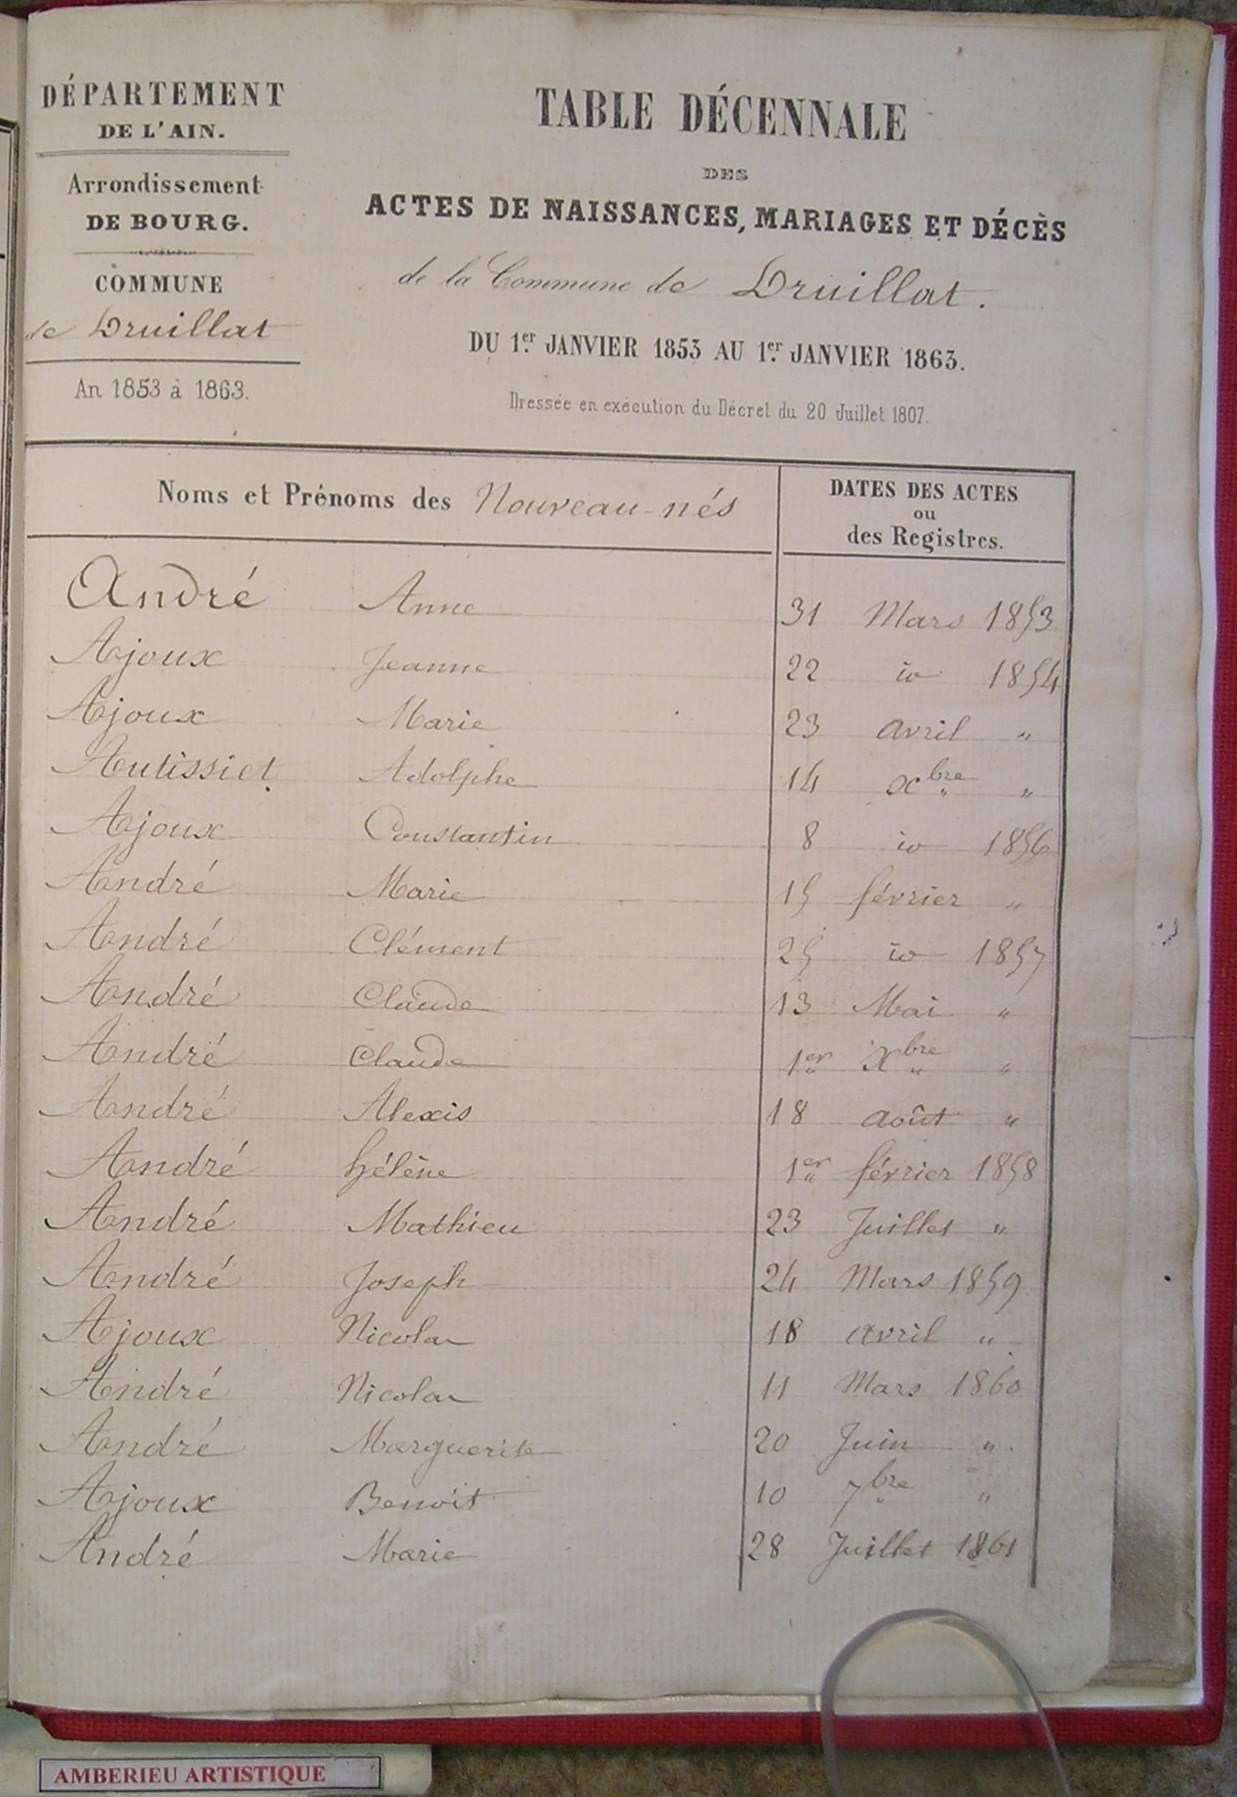 DÉPARTEMENT
DE L'AIN.
Arrondissement
DE BOURG.
COMMUNE
de Druillat
An 1853 à 1863.
TABLE DÉCENNALE
DES
ACTES DE NAISSANCES, MARIAGES ET DÉCÈS
de la Commune de Druillat.
DU 1er JANVIER 1853 AU 1er JANVIER 1863.
Dressée en exécution du Décret du 20 Juillet 1807.
Noms et Prénoms des Nouveau-nés
DATES DES ACTES
ou
des Registres.
André Anne 31 Mars 1853
Ajoux Jeanne 22 io 1854
Ajoux Marie 23 avril "
Autissiet Adolphe 14 xbre "
Ajoux Constantin 8 io 1856
André Marie 15 février "
André Clément 25 io 1857
André Claude 13 Mai "
André Claude 1er Xbre "
André Alexis 18 août "
André hélène 1er février 1858
André Mathieu 23 Juillet "
André Joseph 24 Mars 1859
Ajoux Nicolas 18 avril "
André Nicolas 11 Mars 1860
André Marguerite 20 Juin "
Ajoux Benoît 10 7bre "
André Marie 28 Juillet 1861
AMBERIEU ARTISTIQUE